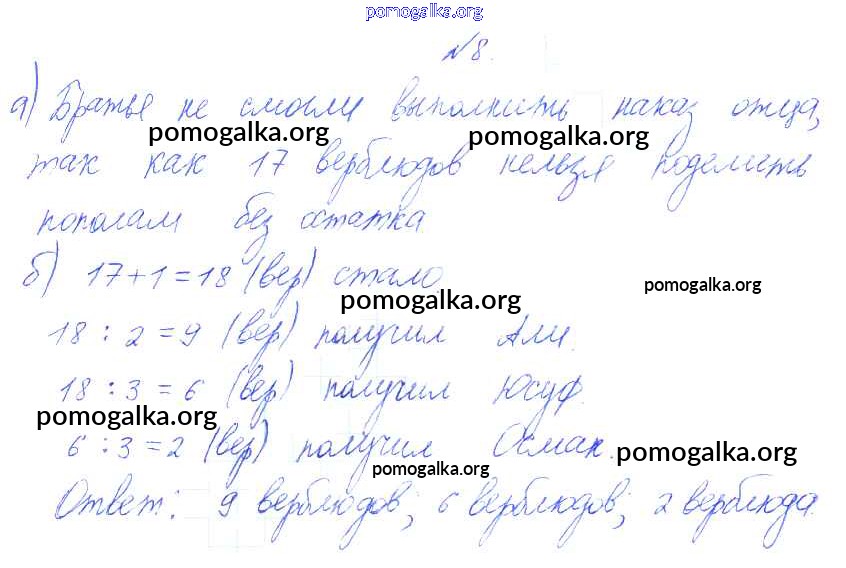 pomogalka.org
№8.
а) Братья не смогли выполнить наказ отца,
pomogalka.org pomogalka.org
так как 17 верблюдов нельзя поделить
пополам без остатка
б) 17+1=18 (вер) стало.
pomogalka.org
pomogalka.org
18 : 2 = 9 (вер) получил Али.
18 : 3 = 6 (вер) получил Юсуф.
pomogalka.org
6 : 3 = 2 (вер) получил Осман.
pomogalka.org
pomogalka.org
Ответ: 9 верблюдов; 6 верблюдов; 2 верблюда.